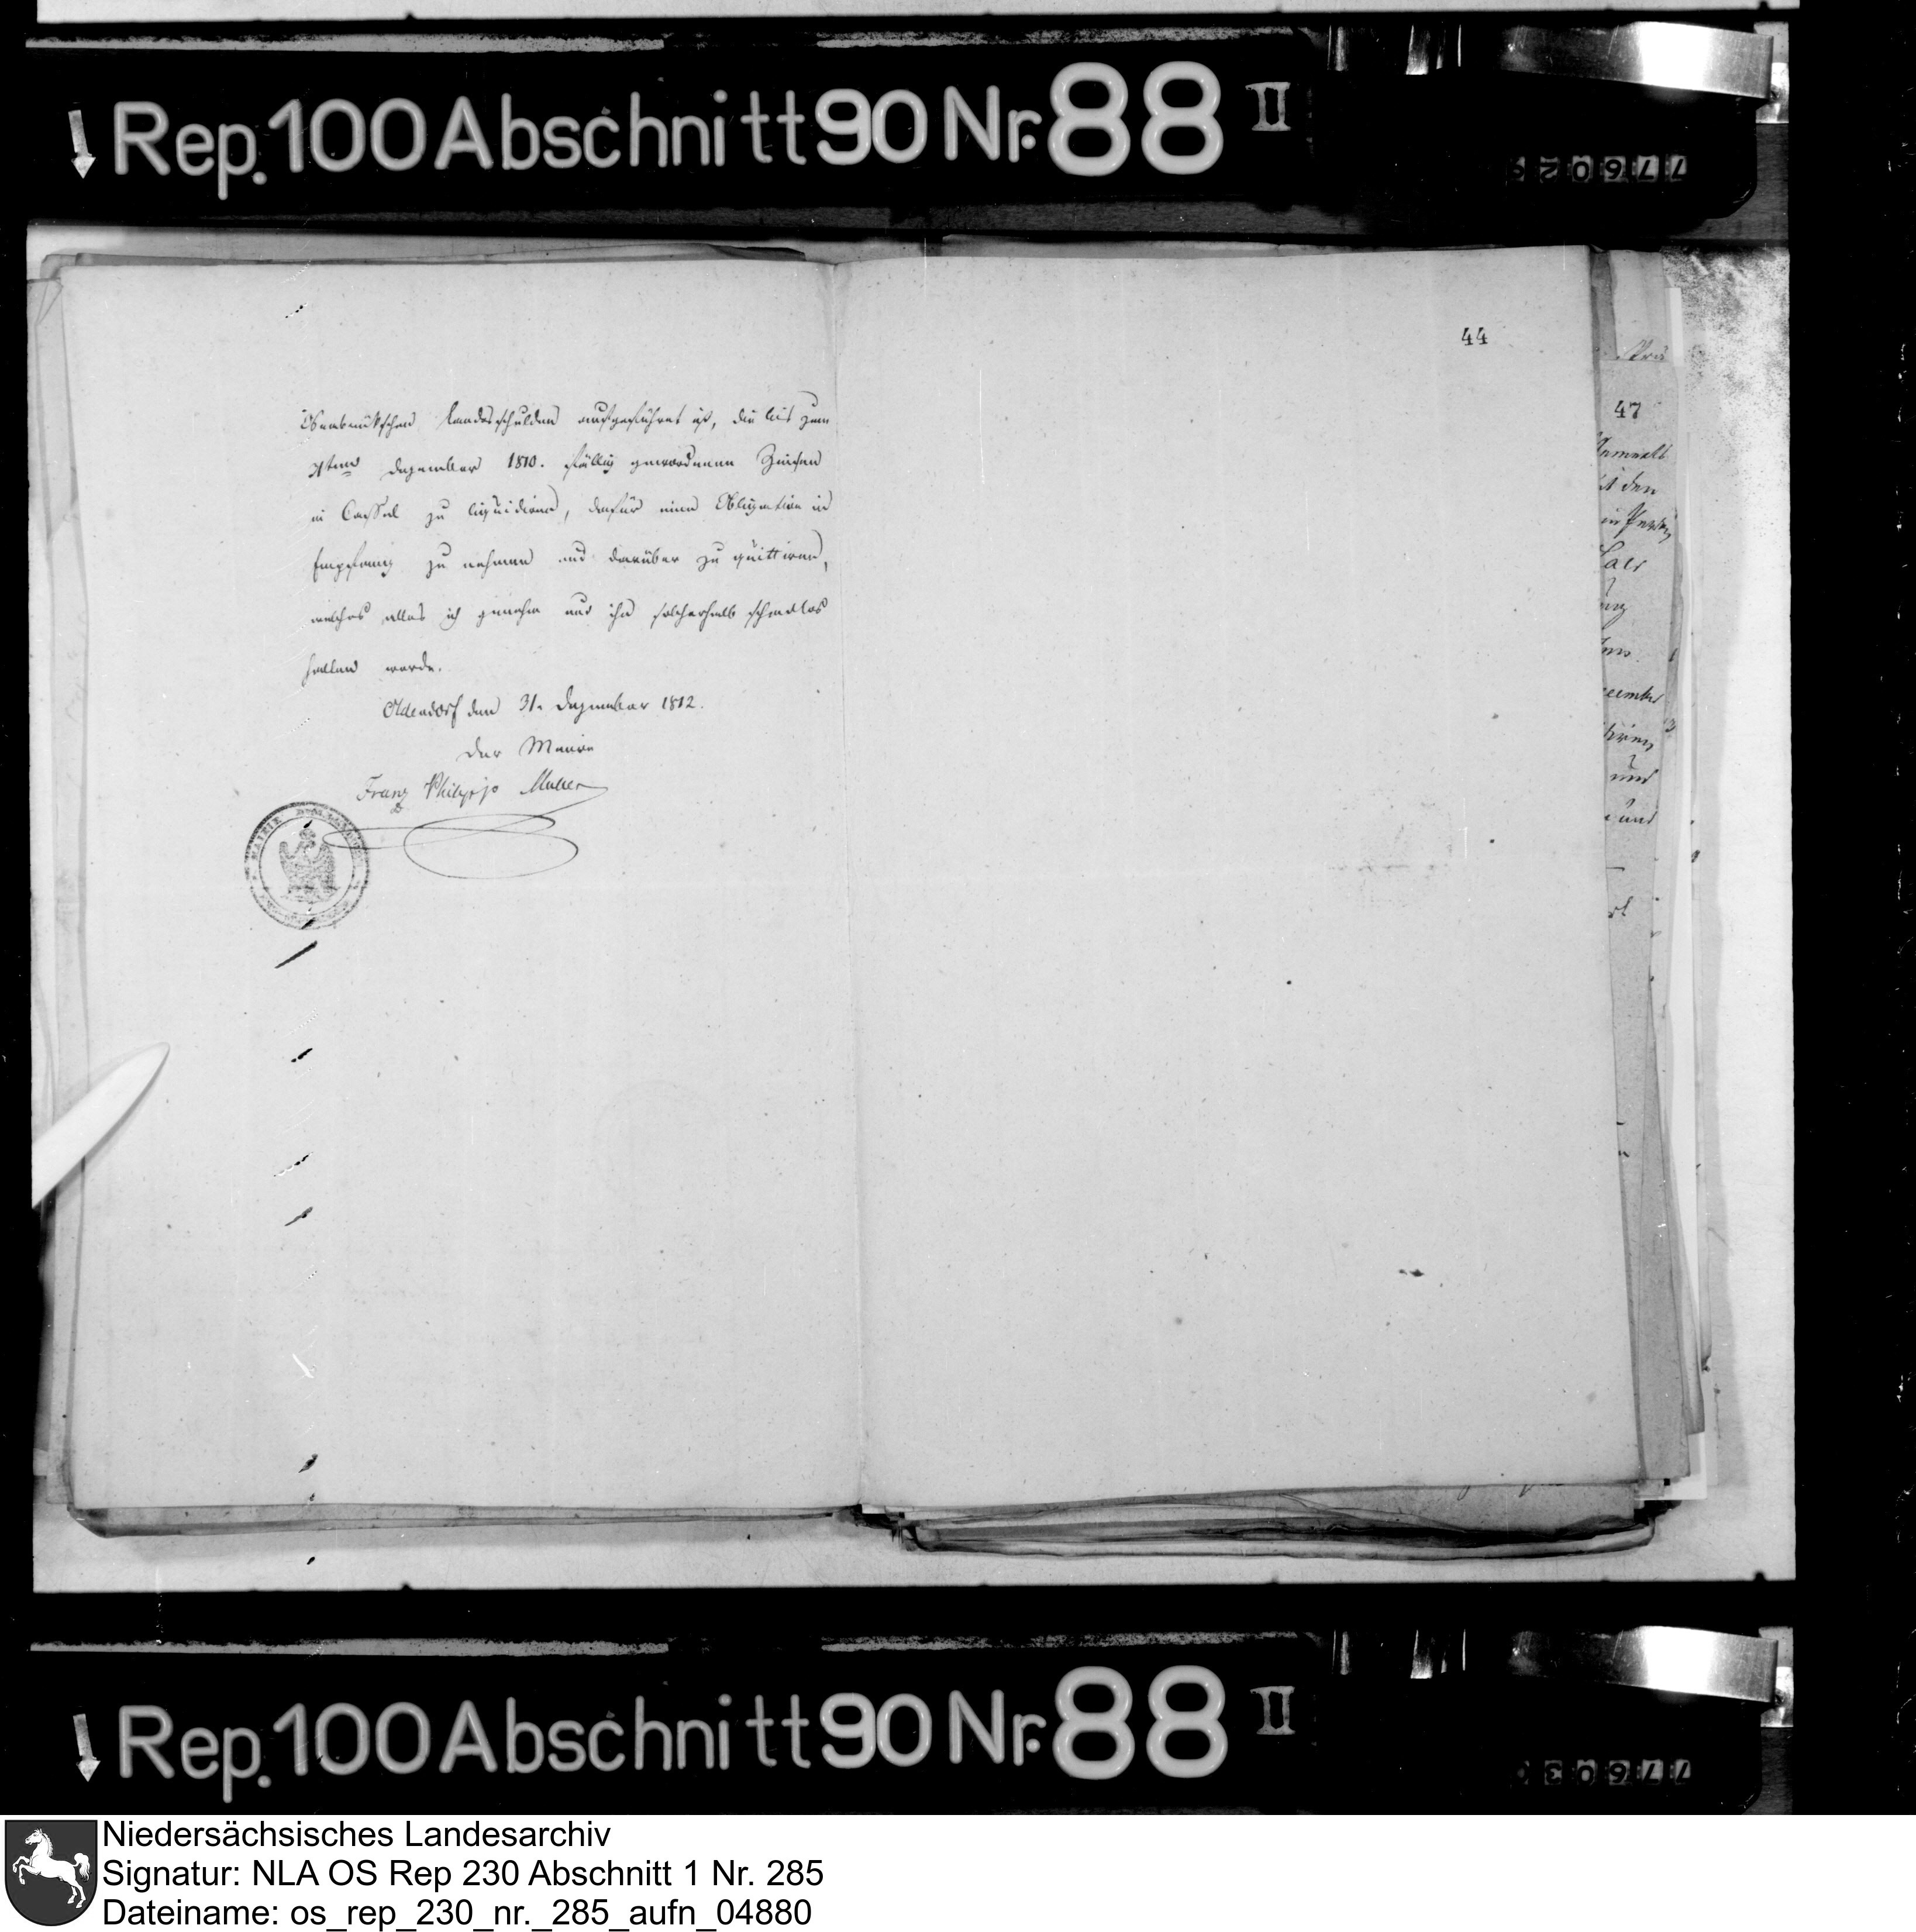 Rep. 100 Abschnitt 90 Nr. 88 II
44
Osnabrükschen Landesschulden aufgeführet ist, die bis zum
Dezember 1810. fällig gewordenen Zinsen
in Cassel zu liquidiren, dafür eine Obligation in
Empfang zu nehmen und darüber zu quittiren,
welches alles ich genehm und ihn solcherhalb schadlos
halten werde.
Oldendorf den 31. Dezember 1812.
Der Maire
Franz Philipp Muller
MAIRIE
47
und
Rep. 100 Abschnitt 90 Nr. 88 II
Niedersächsisches Landesarchiv
Signatur: NLA OS Rep 230 Abschnitt 1 Nr. 285
Dateiname: os_rep_230_nr._285_aufn_04880